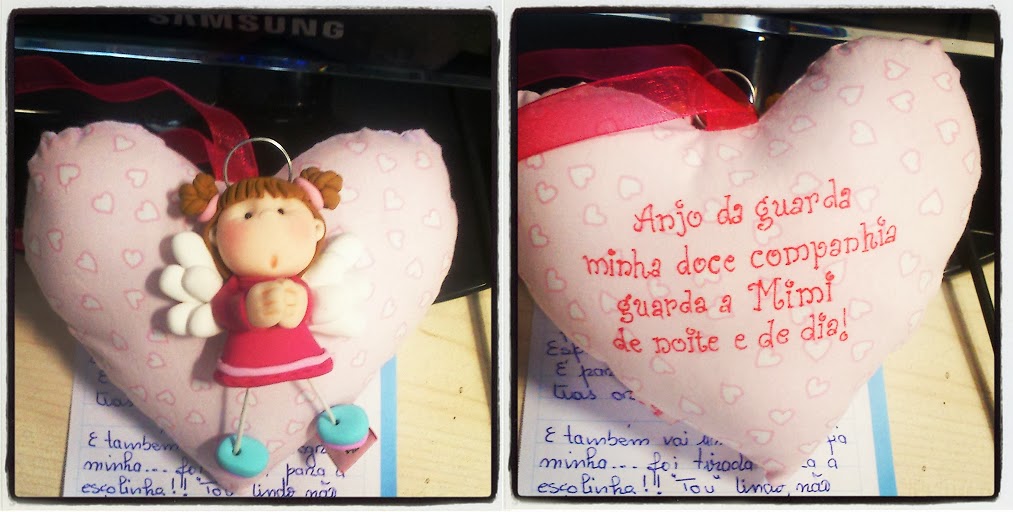 SAMSUNG
E também
minha... foi para a
escolinha!! "Tou" linda não
Anjo da guarda
minha doce companhia
guarda a Mimi
de noite e de dia!
E também vai
minha... foi tirada a
escolinha!! "Tou" linda, não